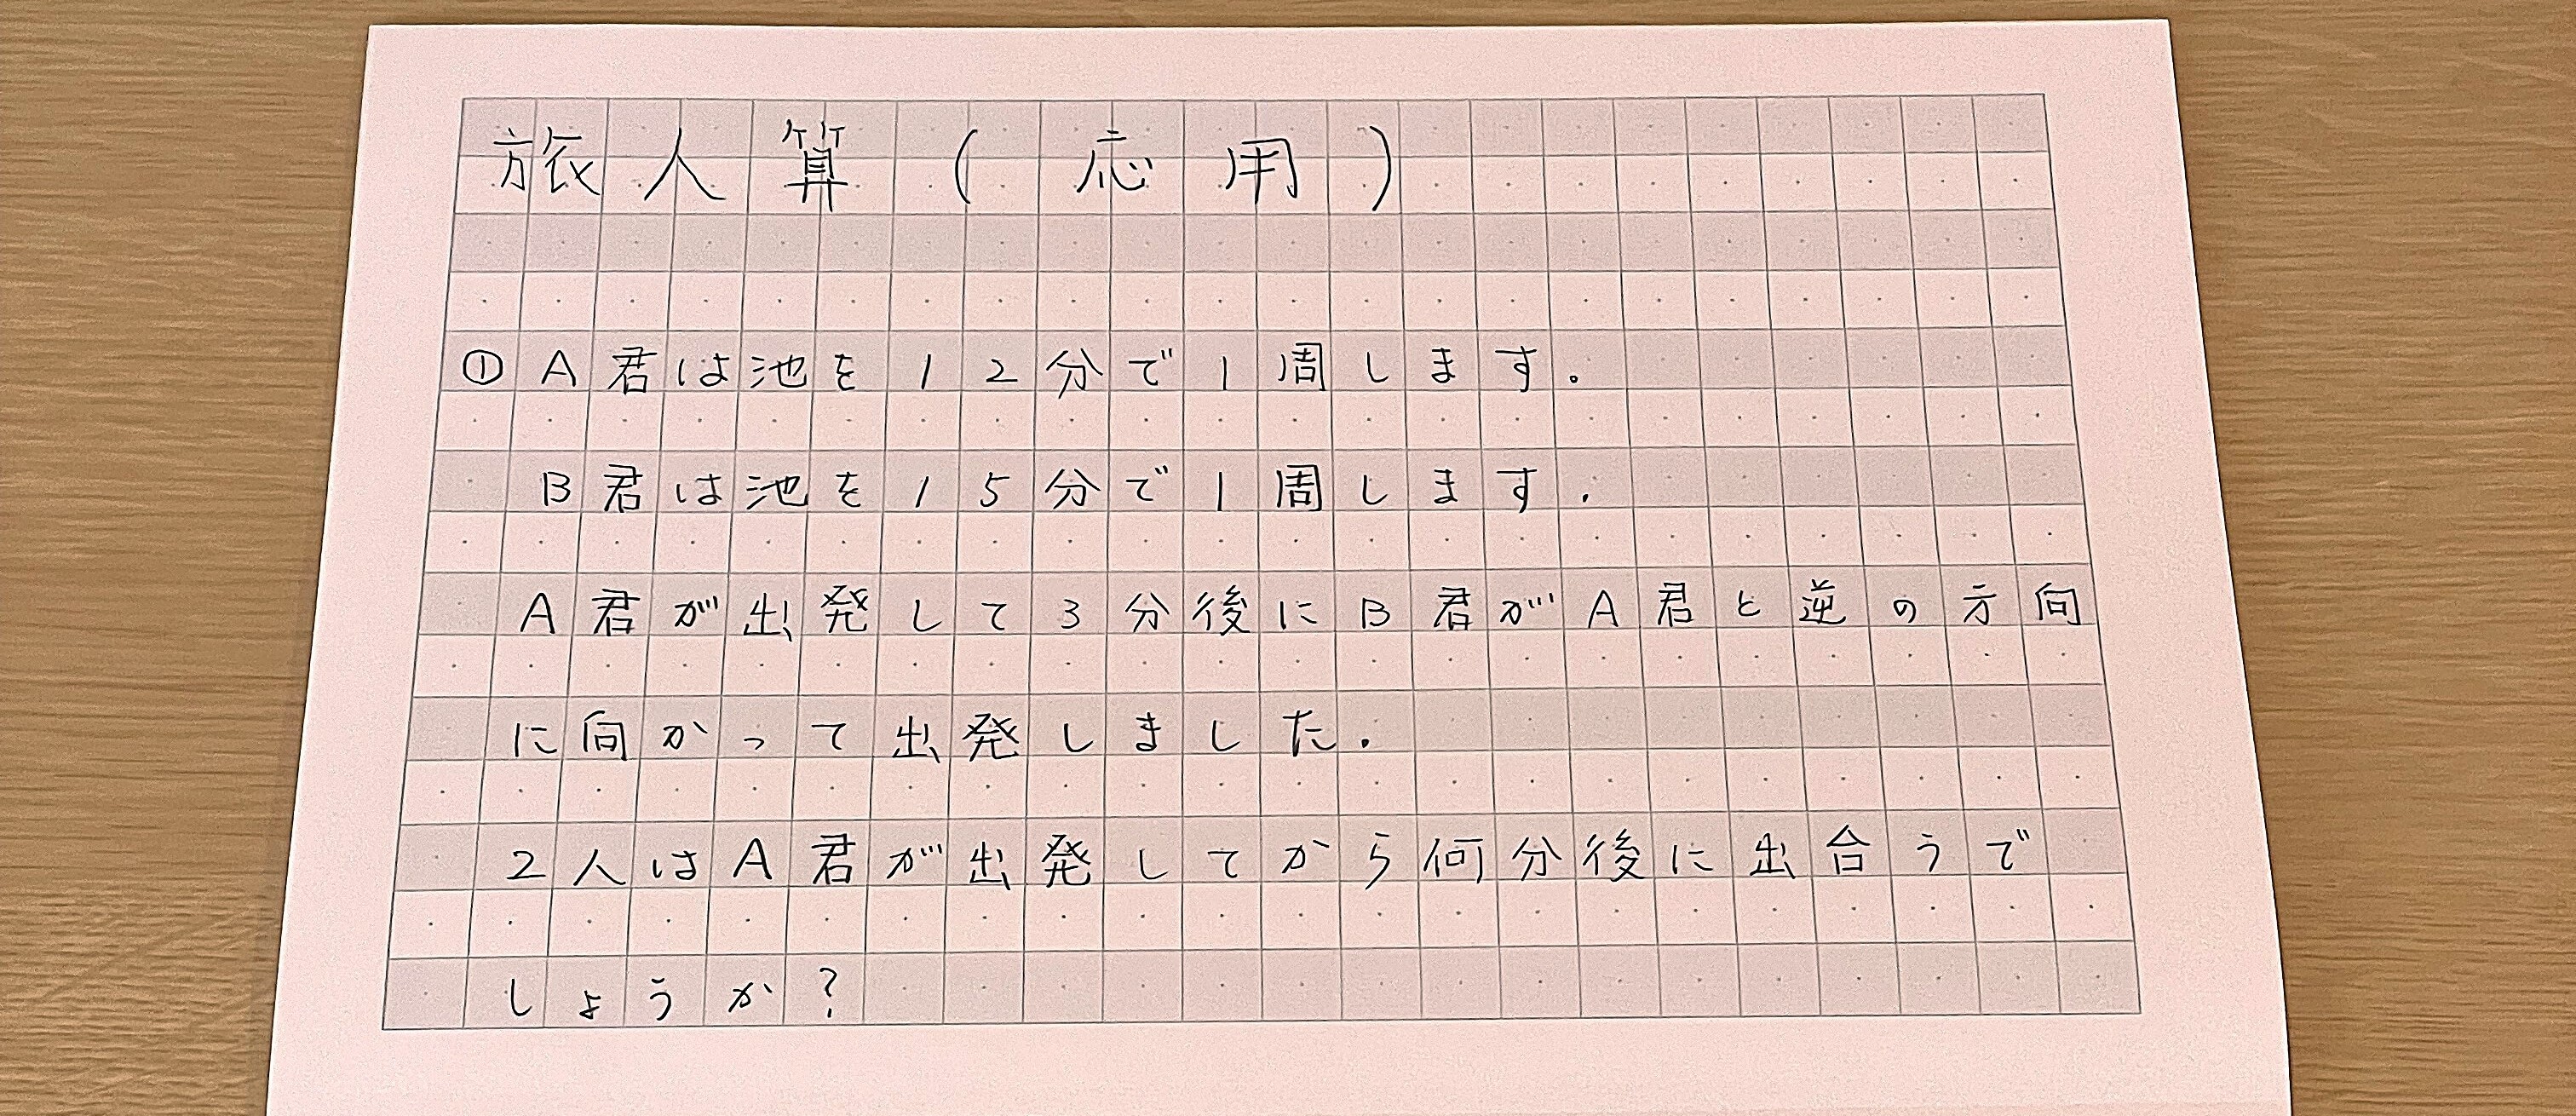 旅人算(応用)
①A君は池を12分で1周します。
B君は池を15分で1周します.
A君が出発して3分後にB君がA君と逆の方向
に向かって出発しました.
2人はA君が出発してから何分後に出合うで
しょうか?